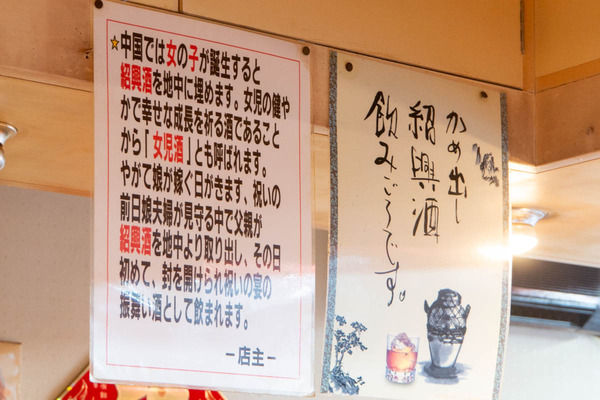 ☆中国では女の子が誕生すると
紹興酒を地中に埋めます。女児の健や
かで幸せな成長を祈る酒であること
から「女児酒」とも呼ばれます。
やがて娘が嫁ぐ日がきます、祝いの
前日娘夫婦が見守る中で父親が
紹興酒を地中より取り出し、その日
初めて、封を開けられ祝いの宴の
振舞い酒として飲まれます。
－店主－
かめ出し
紹興酒
飲みごろです。